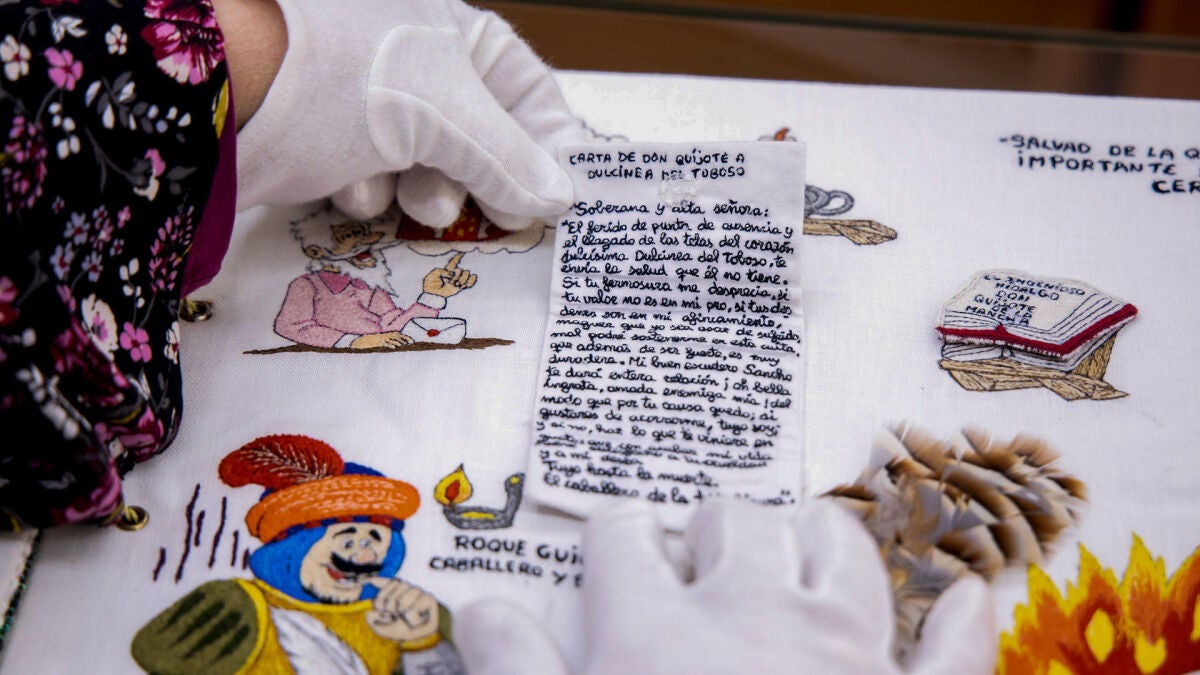 CARTA DE DON QUIJOTE A
DULCINEA DEL TOBOSO
"Soberana y alta señora:
"El ferido de punta de ausencia y
el llagado de las telas del corazón
dulcísima Dulcinea del Toboso, te
envía la salud que él no tiene.
Si tu fermosura me desprecia, si
tu valor no es en mi pro, si tus des
denes son en mi afincamiento,
maguer que yo sea asaz de sufrido
mal podré sostenerme en esta cuita,
que además de ser fuerte, es muy
duradera. Mi buen escudero Sancho
te dará entera relación ¡oh bella
ingrata, amada enemiga mía! del
modo que por tu causa quedo; si
gustares de acorrerme, tuyo soy
y si no, haz lo que te viniere en
que con acabar mi vida
y a mi deseo
Tuyo hasta la muerte.
El caballero de la
"SALVAD DE LA Q
IMPORTANTE
CER
EL INGENIOSO
HIDALGO
DON
QUIJOTE
DE LA
MANCHA
ROQUE GUI
CABALLERO Y